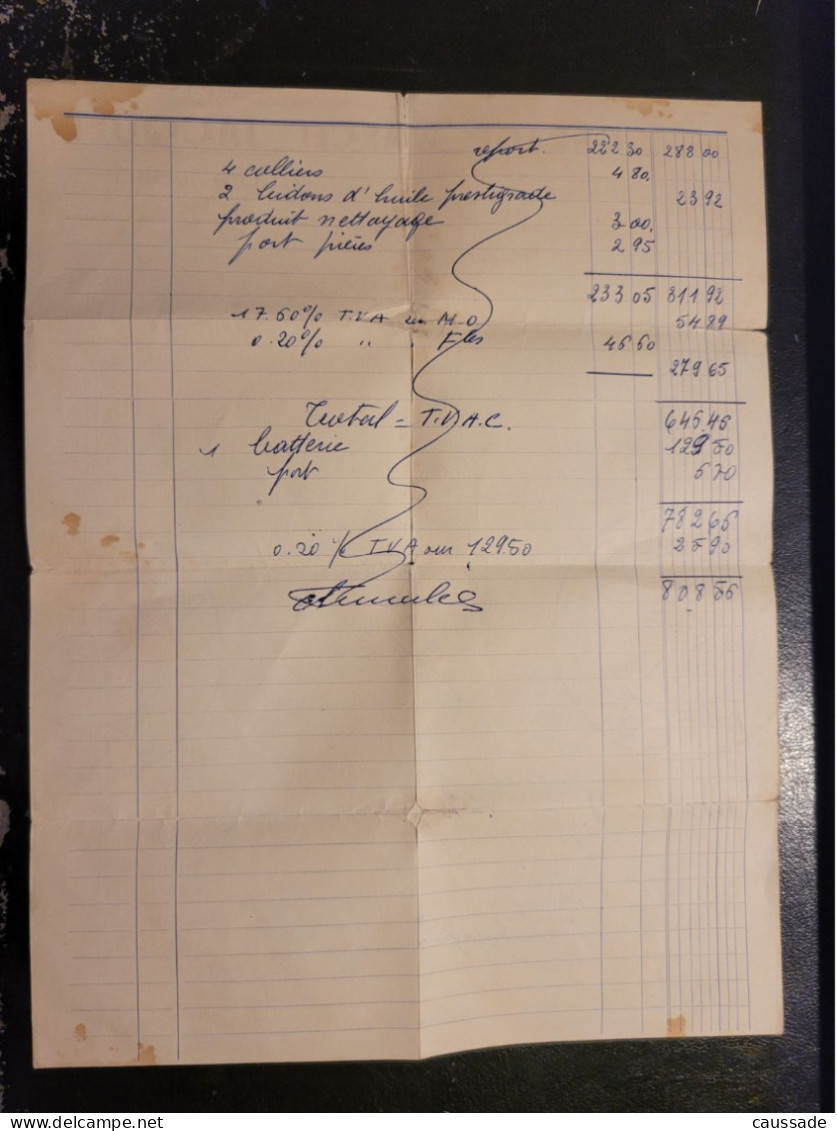 report. 222 30 288 00
4 colliers 4 80.
2 bidons d'huile prestigrade 23 92
produit nettayage 3 00.
port pièces 2 95
233 05 311 92
17.60% T.V.A sur M.O. 54 89
0.20% " " Fles 46 60
279 65
Total = T.V.A.C. 646.46
1 batterie 129 50
port 6 70
782 66
0.20% T.V.A sur 129.50 25 90
808 56
caussade